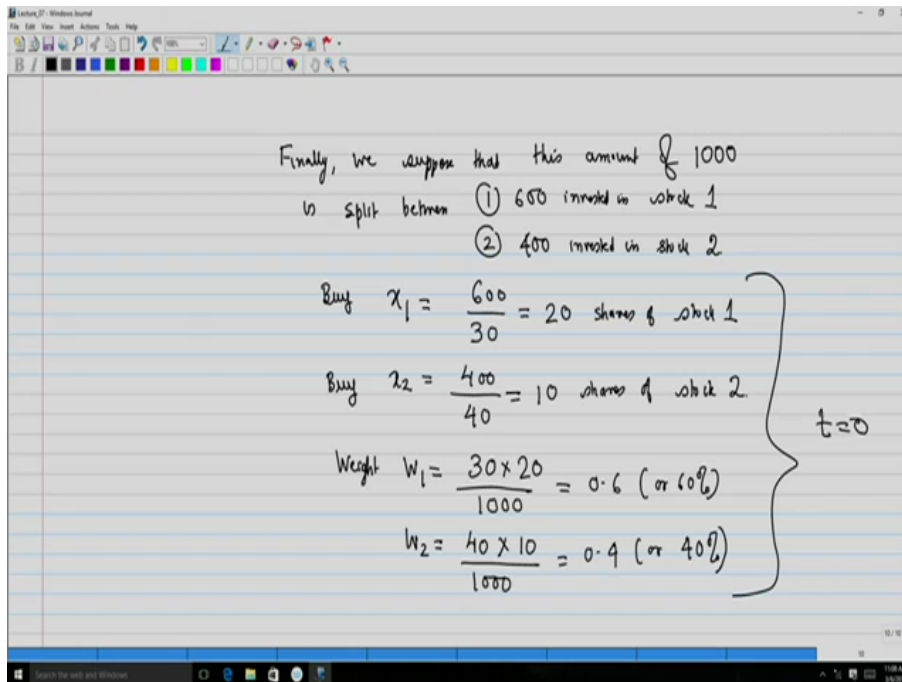 Lecture_07 - Windows Journal
File Edit View Insert Actions Tools Help
100%
B I
Finally, we suppose that this amount of 1000
is split between ① 600 invested in stock 1
② 400 invested in stock 2
Buy x₁ = 600 / 30 = 20 shares of stock 1
Buy x₂ = 400 / 40 = 10 shares of stock 2
t=0
Weight W₁ = 30 × 20 / 1000 = 0.6 (or 60%)
W₂ = 40 × 10 / 1000 = 0.4 (or 40%)
10 / 10
10
Search the web and Windows